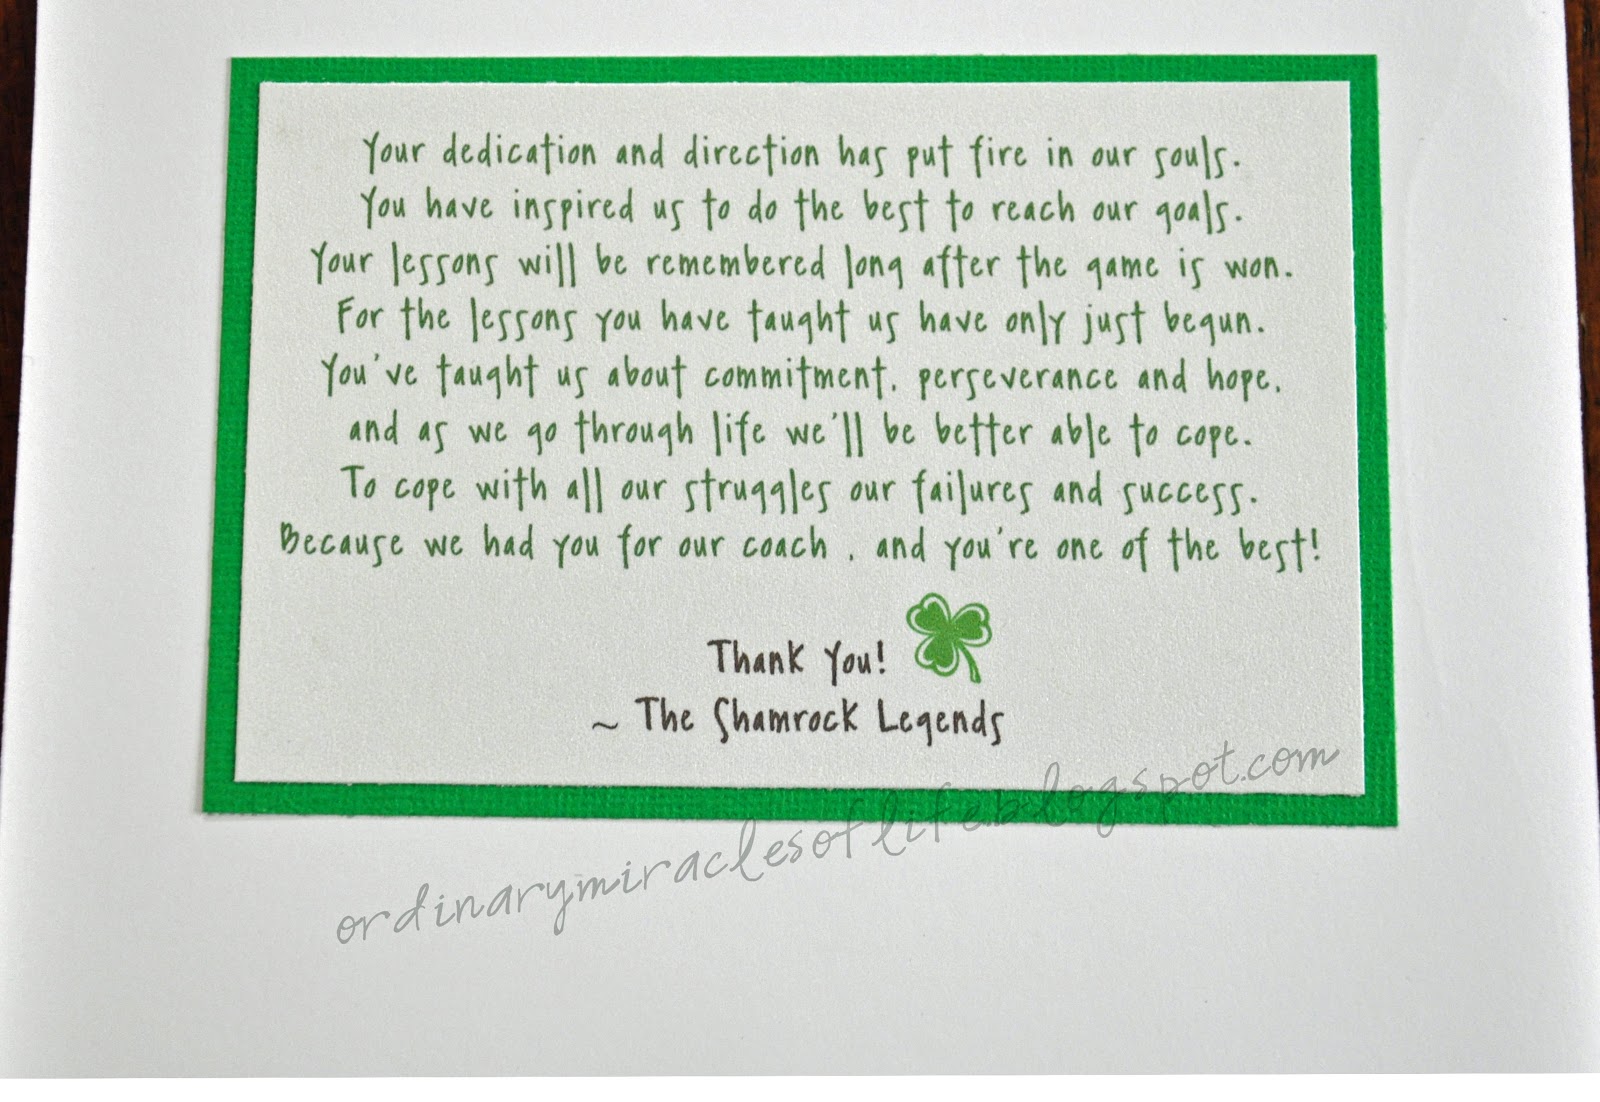 Your dedication and direction has put fire in our souls.
You have inspired us to do the best to reach our goals.
Your lessons will be remembered long after the game is won.
For the lessons you have taught us have only just begun.
You've taught us about commitment, perseverance and hope,
and as we go through life we'll be better able to cope.
To cope with all our struggles our failures and success.
Because we had you for our coach , and you're one of the best!
Thank You!
~ The Shamrock Legends
ordinarymiraclesoflife.blogspot.com